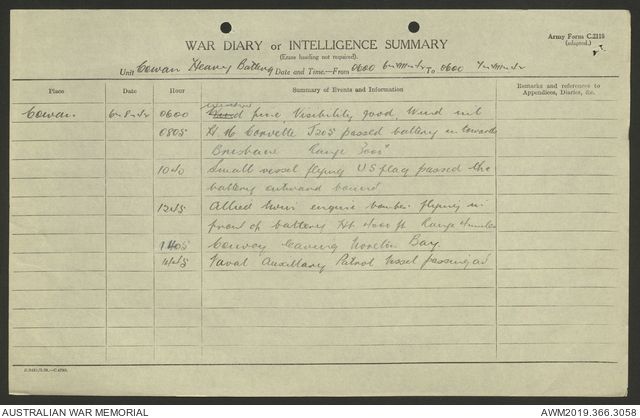 Army Form C.2118
(adapted.)
WAR DIARY or INTELLIGENCE SUMMARY
(Erase heading not required).
Unit Cowan Heavy Battery Date and Time:—From 0600 To 0600
Place Date Hour Summary of Events and Information Remarks and references to Appendices, Diaries, &c.
Cowan 0600 fine Visibility good, Wind
0805 H M Corvette J205 passed battery towards
Brisbane Range
1040 Small vessel flying US flag passed the
battery outward bound
1245 Allied twin engine bomber flying in
front of battery Ht 4000 ft Range
1405 Convoy leaving Moreton Bay.
Naval Auxillary Patrol Vessel passing
AUSTRALIAN WAR MEMORIAL
AWM2019.366.3058